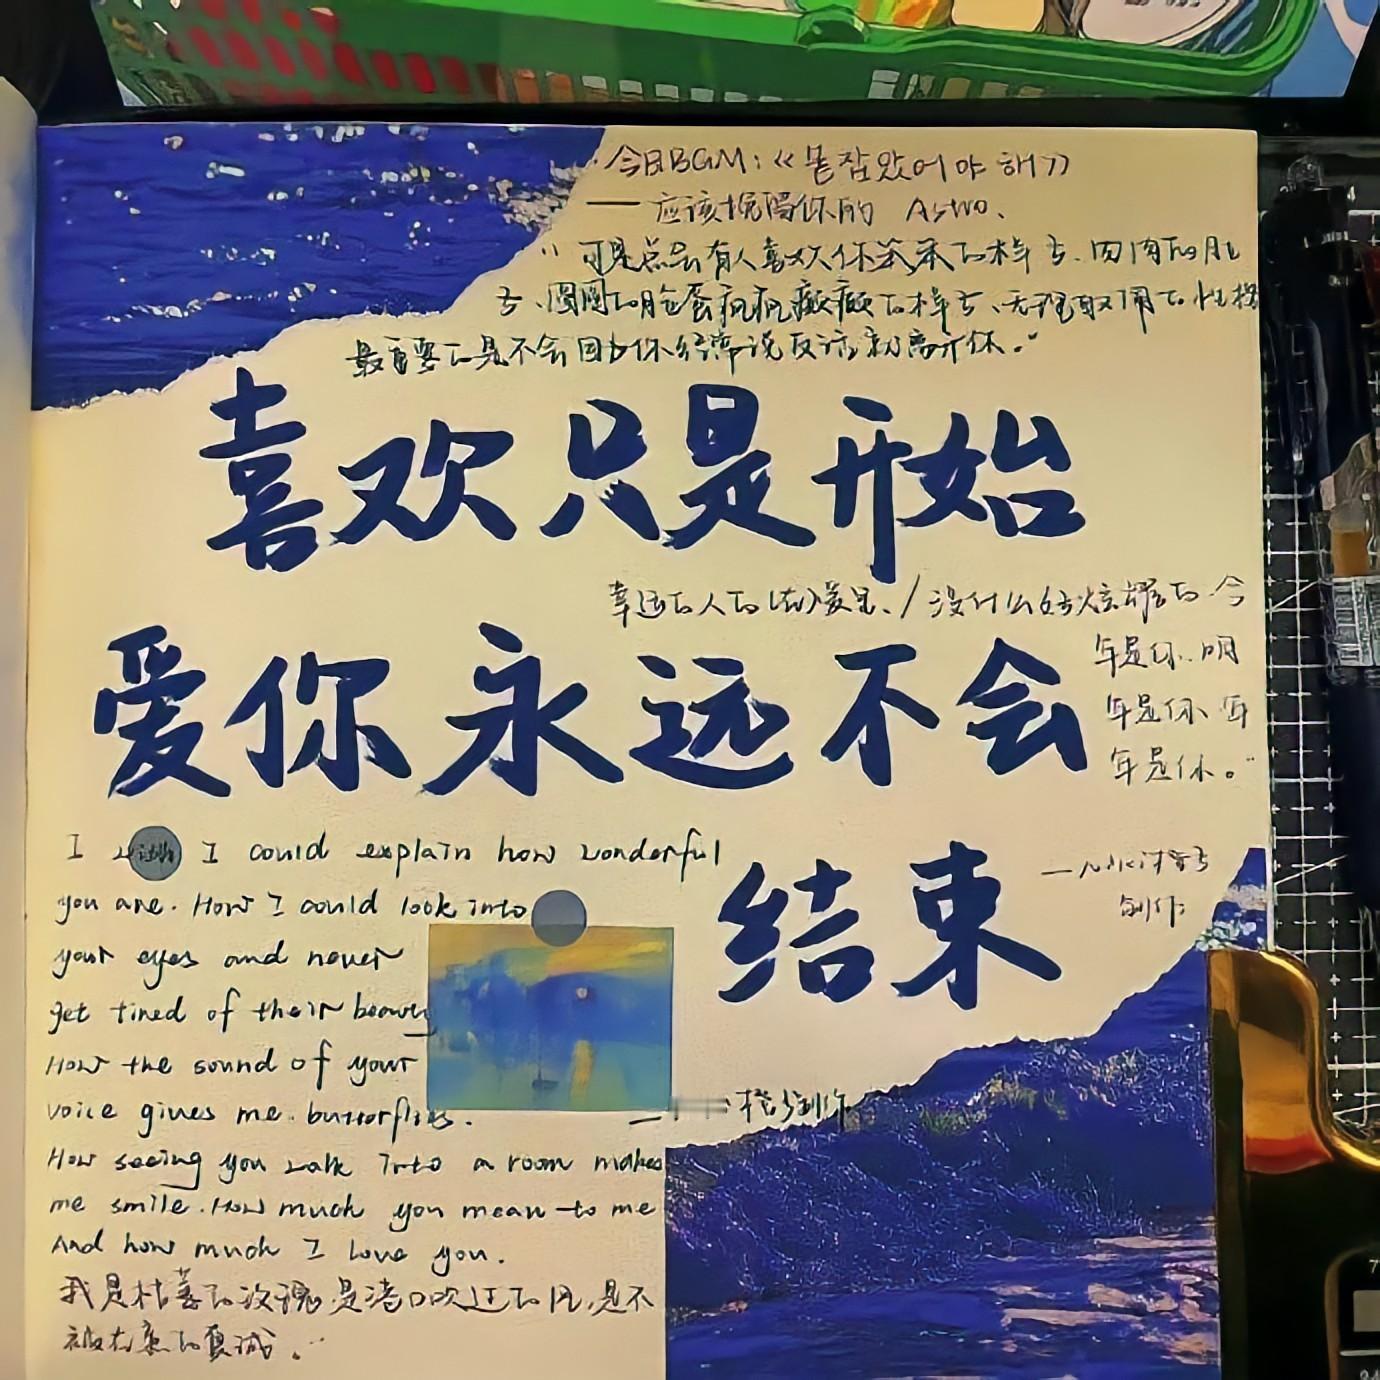 今日BGM:《붙잡았어야 해》
——应该挽留你的 Astro、
"可是总会有人喜欢你笨笨的样子、肉肉的肚
子、圆圆的脸蛋疯疯癫癫的样子、无理取闹的性格
最重要的是不会因为你经常说反话就离开你。"
喜欢只是开始
幸运的人的 /没什么好炫耀的 今
年是你、明
年是你、年
年是你。"
爱你永远不会
结束
创作
I I could explain how wonderful
you are. How I could look into
your eyes and never
get tired of their beauty
How the sound of your
voice gives me butterflies.
How seeing you walk into a room makes
me smile. How much you mean to me
And how much I love you.
橙子创作
我是枯萎的玫瑰,是港口吹过的风,是不
被在意的真诚。"